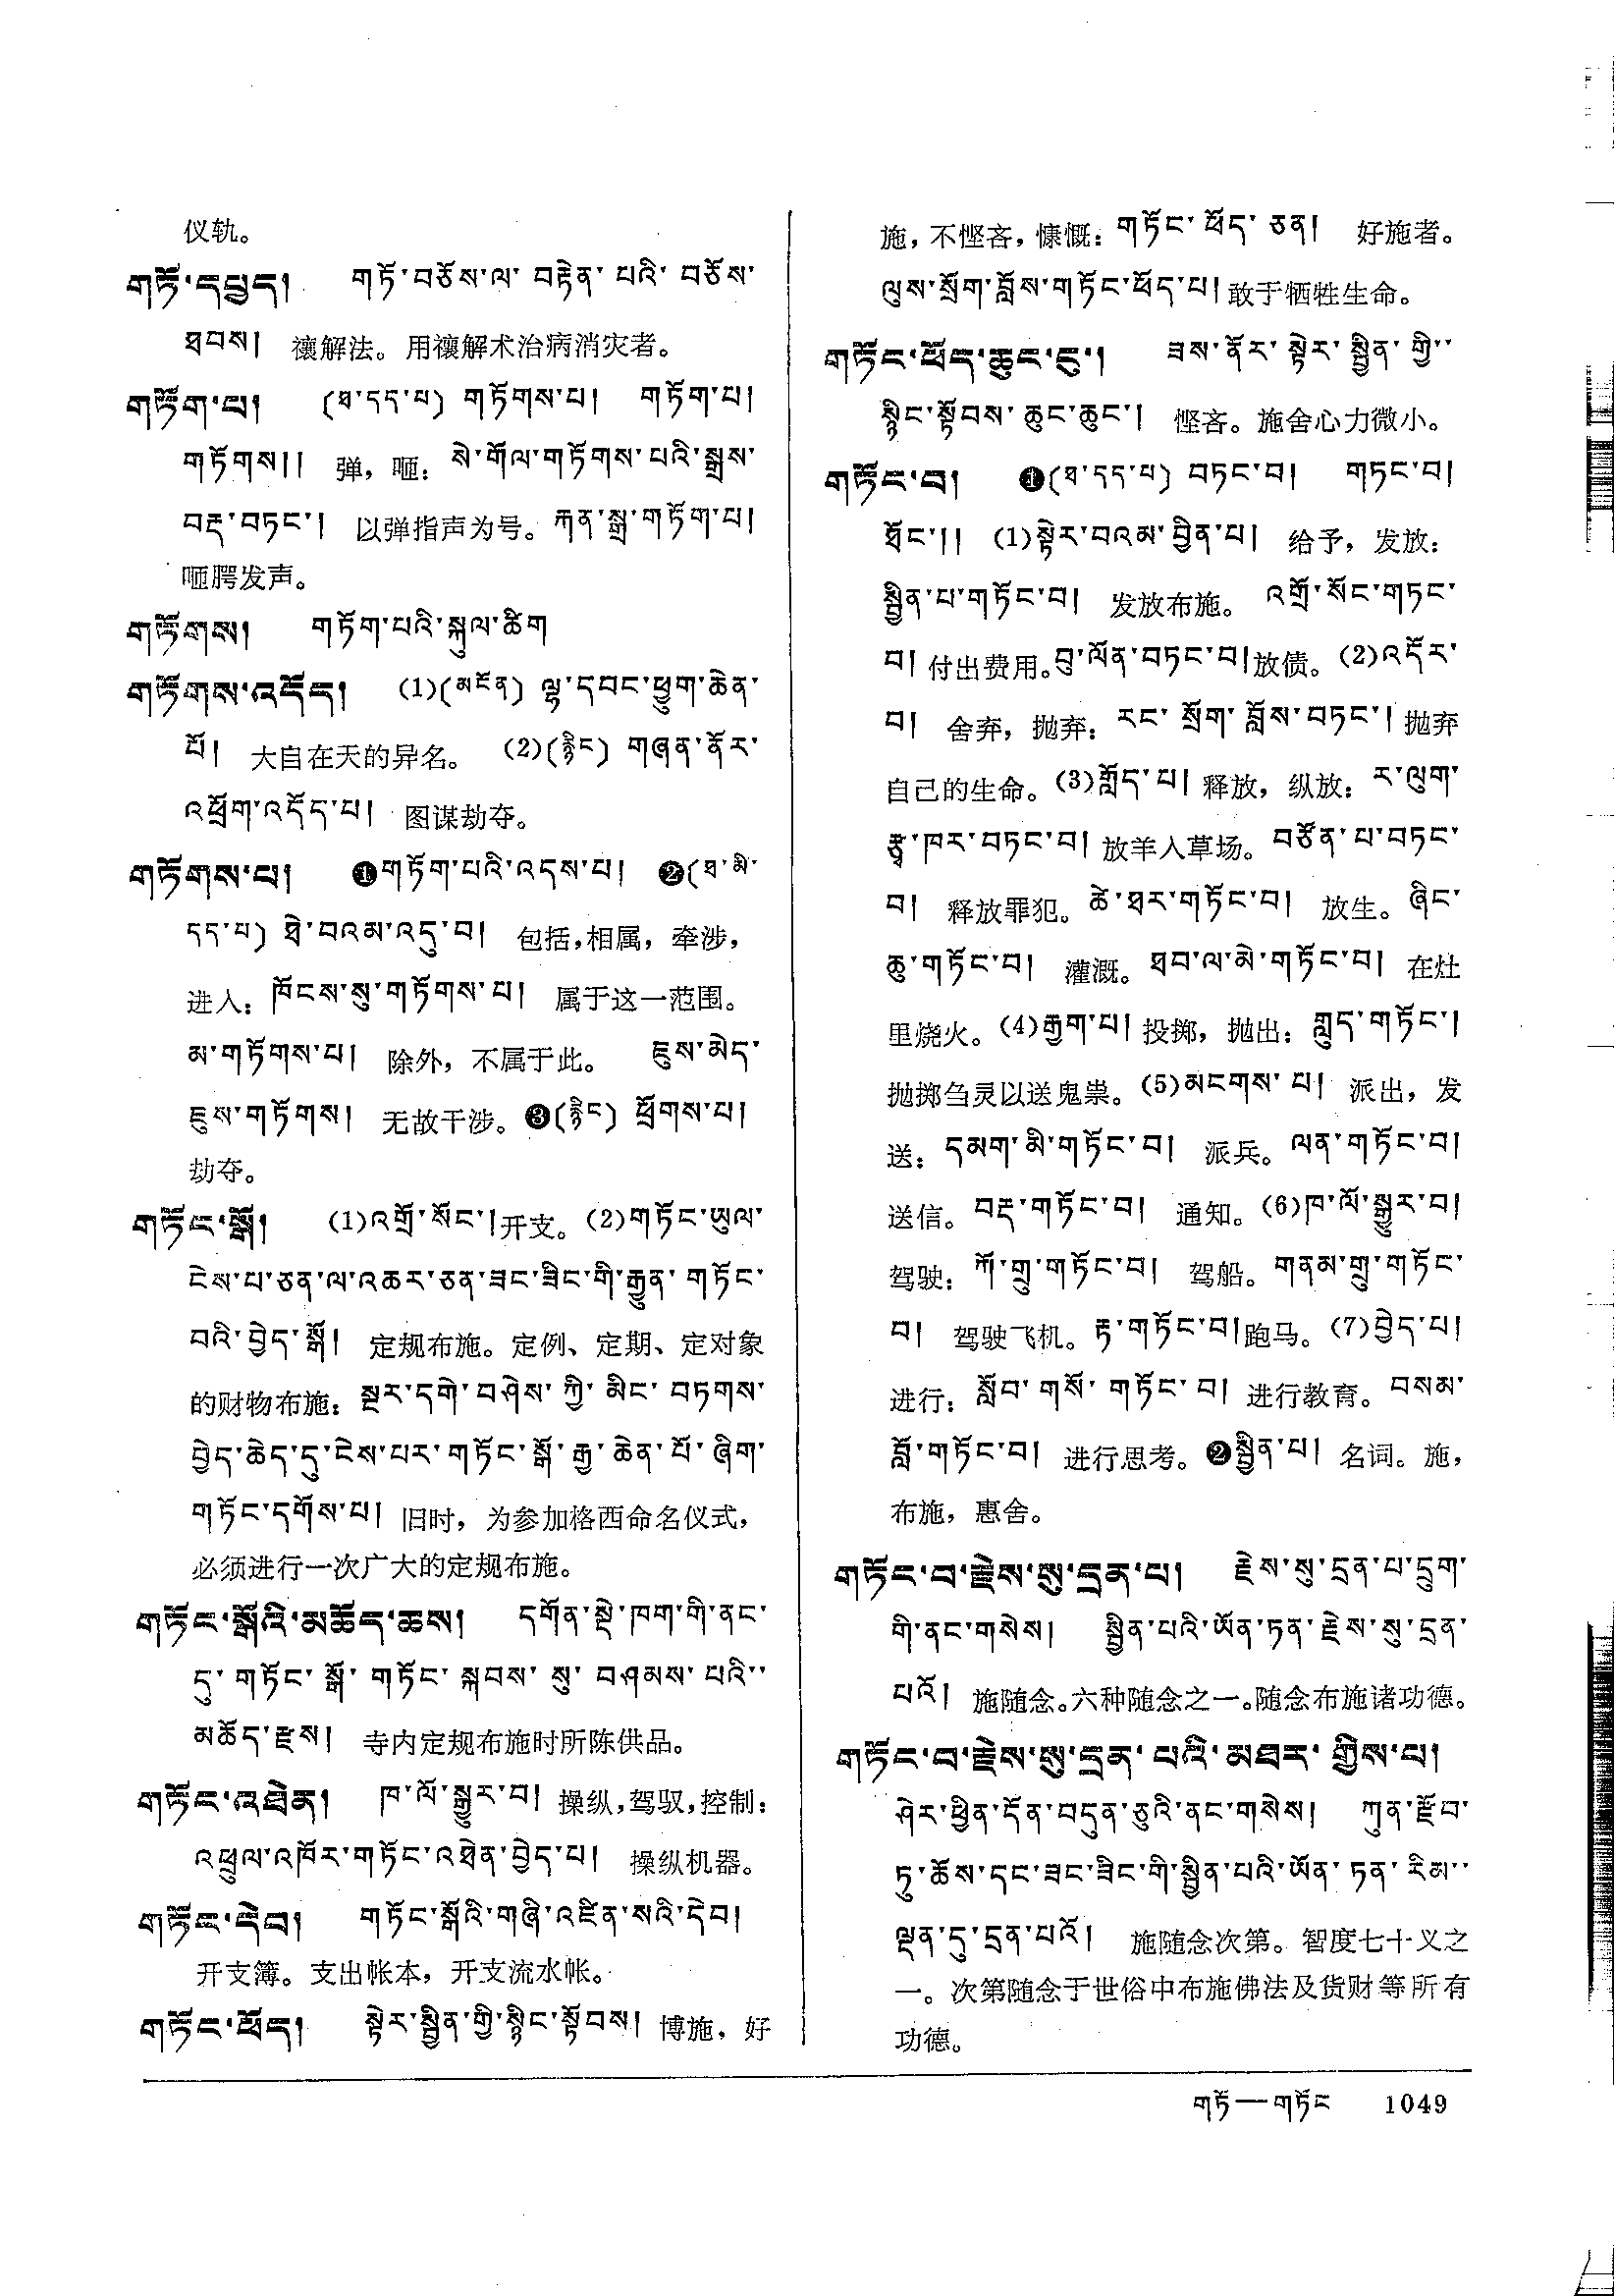 仪轨。
གཏོ་དཔྱད། གཏོ་བཅོས་ལ་བརྟེན་པའི་བཅོས་
ཐབས། 禳解法。用禳解术治病消灾者。
གཏོག་པ། (ཐ་དད་པ) གཏོགས་པ། གཏོག་པ།
གཏོགས།། 弹，咂：སེ་གོལ་གཏོགས་པའི་སྒྲས་
བརྡ་བཏང་། 以弹指声为号。རྐན་སྒྲ་གཏོག་པ།
咂腭发声。
གཏོགས། གཏོག་པའི་སྐུལ་ཚིག
གཏོགས་འདོད། (1)(མངོན) ལྷ་དབང་ཕྱུག་ཆེན་
པོ། 大自在天的异名。 (2)(རྙིང) གཞན་ནོར་
འཕྲོག་འདོད་པ། 图谋劫夺。
གཏོགས་པ། ❶གཏོག་པའི་འདས་པ། ❷(ཐ་མི་
དད་པ) ཐེ་བའམ་འདུ་བ། 包括，相属，牵涉，
进入：ཁོངས་སུ་གཏོགས་པ། 属于这一范围。
མ་གཏོགས་པ། 除外，不属于此。 ཇུས་མེད་
ཇུས་གཏོགས། 无故干涉。❸(རྙིང) ཕྲོགས་པ།
劫夺。
གཏོང་སྒོ། (1)འགྲོ་སོང་།开支。(2)གཏོང་ཡུལ་
ངེས་པ་ཅན་ལ་འཆར་ཅན་ཟང་ཟིང་གི་རྒྱུན་གཏོང་
བའི་བྱེད་སྒོ། 定规布施。定例、定期、定对象
的财物布施：སྔར་དགེ་བཤེས་ཀྱི་མིང་བཏགས་
བྱེད་ཆེད་དུ་ངེས་པར་གཏོང་སྒོ་རྒྱ་ཆེན་པོ་ཞིག་
གཏོང་དགོས་པ། 旧时，为参加格西命名仪式，
必须进行一次广大的定规布施。
གཏོང་སྒོའི་མཆོད་ཆས། དགོན་སྡེ་ཁག་གི་ནང་
དུ་གཏོང་སྒོ་གཏོང་སྐབས་སུ་བཤམས་པའི་་
མཆོད་རྫས། 寺内定规布施时所陈供品。
གཏོང་འཐེན། ཁ་ལོ་སྒྱུར་བ། 操纵，驾驭，控制：
འཕྲུལ་འཁོར་གཏོང་འཐེན་བྱེད་པ། 操纵机器。
གཏོང་དེབ། གཏོང་སྒོའི་གཞི་འཛིན་སའི་དེབ།
开支簿。支出帐本，开支流水帐。
གཏོང་ཕོད། སྟེར་སྦྱིན་གྱི་སྙིང་སྟོབས། 博施，好
施，不悭吝，慷慨：གཏོང་ཕོད་ཅན། 好施者。
ལུས་སྲོག་བློས་གཏོང་ཕོད་པ།敢于牺牲生命。
གཏོང་ཕོད་ཆུང་ངུ་། ཟས་ནོར་སྟེར་སྦྱིན་གྱི་་
སྙིང་སྟོབས་ཆུང་ཆུང་། 悭吝。施舍心力微小。
གཏོང་བ། ❶(ཐ་དད་པ) བཏང་བ། གཏང་བ།
ཐོང་།། (1)སྟེར་བའམ་བྱིན་པ། 给予，发放：
སྦྱིན་པ་གཏོང་བ། 发放布施。 འགྲོ་སོང་གཏང་
བ།付出费用。བུ་ལོན་བཏང་བ།放债。(2)འདོར་
བ། 舍弃，抛弃：རང་སྲོག་བློས་བཏང་།抛弃
自己的生命。(3)གློད་པ།释放，纵放：ར་ལུག་
རྩྭ་ཁར་བཏང་བ།放羊入草场。བཙོན་པ་བཏང་
བ། 释放罪犯。ཚེ་ཐར་གཏོང་བ། 放生。ཞིང་
ཆུ་གཏོང་བ། 灌溉。ཐབ་ལ་མེ་གཏོང་བ། 在灶
里烧火。(4)རྒྱག་པ།投掷，抛出：གླུད་གཏོང་།
抛掷刍灵以送鬼祟。(5)མངགས་པ། 派出，发
送：དམག་མི་གཏོང་བ། 派兵。ལན་གཏོང་བ།
送信。བརྡ་གཏོང་བ། 通知。(6)ཁ་ལོ་སྒྱུར་བ།
驾驶：ཀོ་གྲུ་གཏོང་བ། 驾船。གནམ་གྲུ་གཏོང་
བ། 驾驶飞机。རྟ་གཏོང་བ།跑马。(7)བྱེད་པ།
进行：སློབ་གསོ་གཏོང་བ།进行教育。བསམ་
བློ་གཏོང་བ། 进行思考。❷སྦྱིན་པ། 名词。施，
布施，惠舍。
གཏོང་བ་རྗེས་སུ་དྲན་པ། རྗེས་སུ་དྲན་པ་དྲུག་
གི་ནང་གསེས། སྦྱིན་པའི་ཡོན་ཏན་རྗེས་སུ་དྲན་
པའོ། 施随念。六种随念之一。随念布施诸功德。
གཏོང་བ་རྗེས་སུ་དྲན་པའི་མཐར་གྱིས་པ།
ཤེར་ཕྱིན་དོན་བདུན་ཅུའི་ནང་གསེས། ཀུན་རྫོབ་
ཏུ་ཆོས་དང་ཟང་ཟིང་གི་སྦྱིན་པའི་ཡོན་ཏན་རིམ་་
ལྡན་དུ་དྲན་པའོ། 施随念次第。智度七十义之
一。次第随念于世俗中布施佛法及货财等所有
功德。
གཏོ—གཏོང 1049